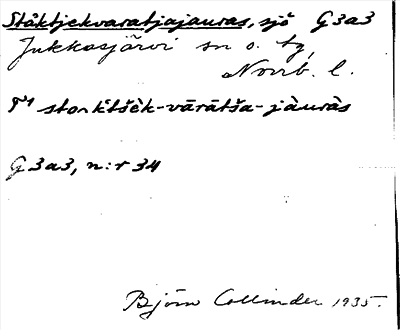 Ståktjekvaratjajauras, sjö G3a3
Jukkasjärvi sn o. tg,
Norrb. l.
storkt́šèk-vārātša-jàuràs
G3a3, n:r 34
Björn Collinder 1935.